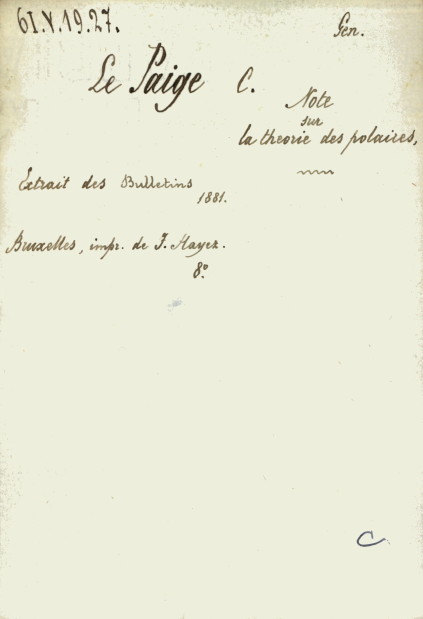 61.V.19.27.
Gen.
Le Paige C.
Note
sur
la theorie des polaires,
Extrait des Bulletins
1881.
Bruxelles, impr. de F. Hayez.
8º
C